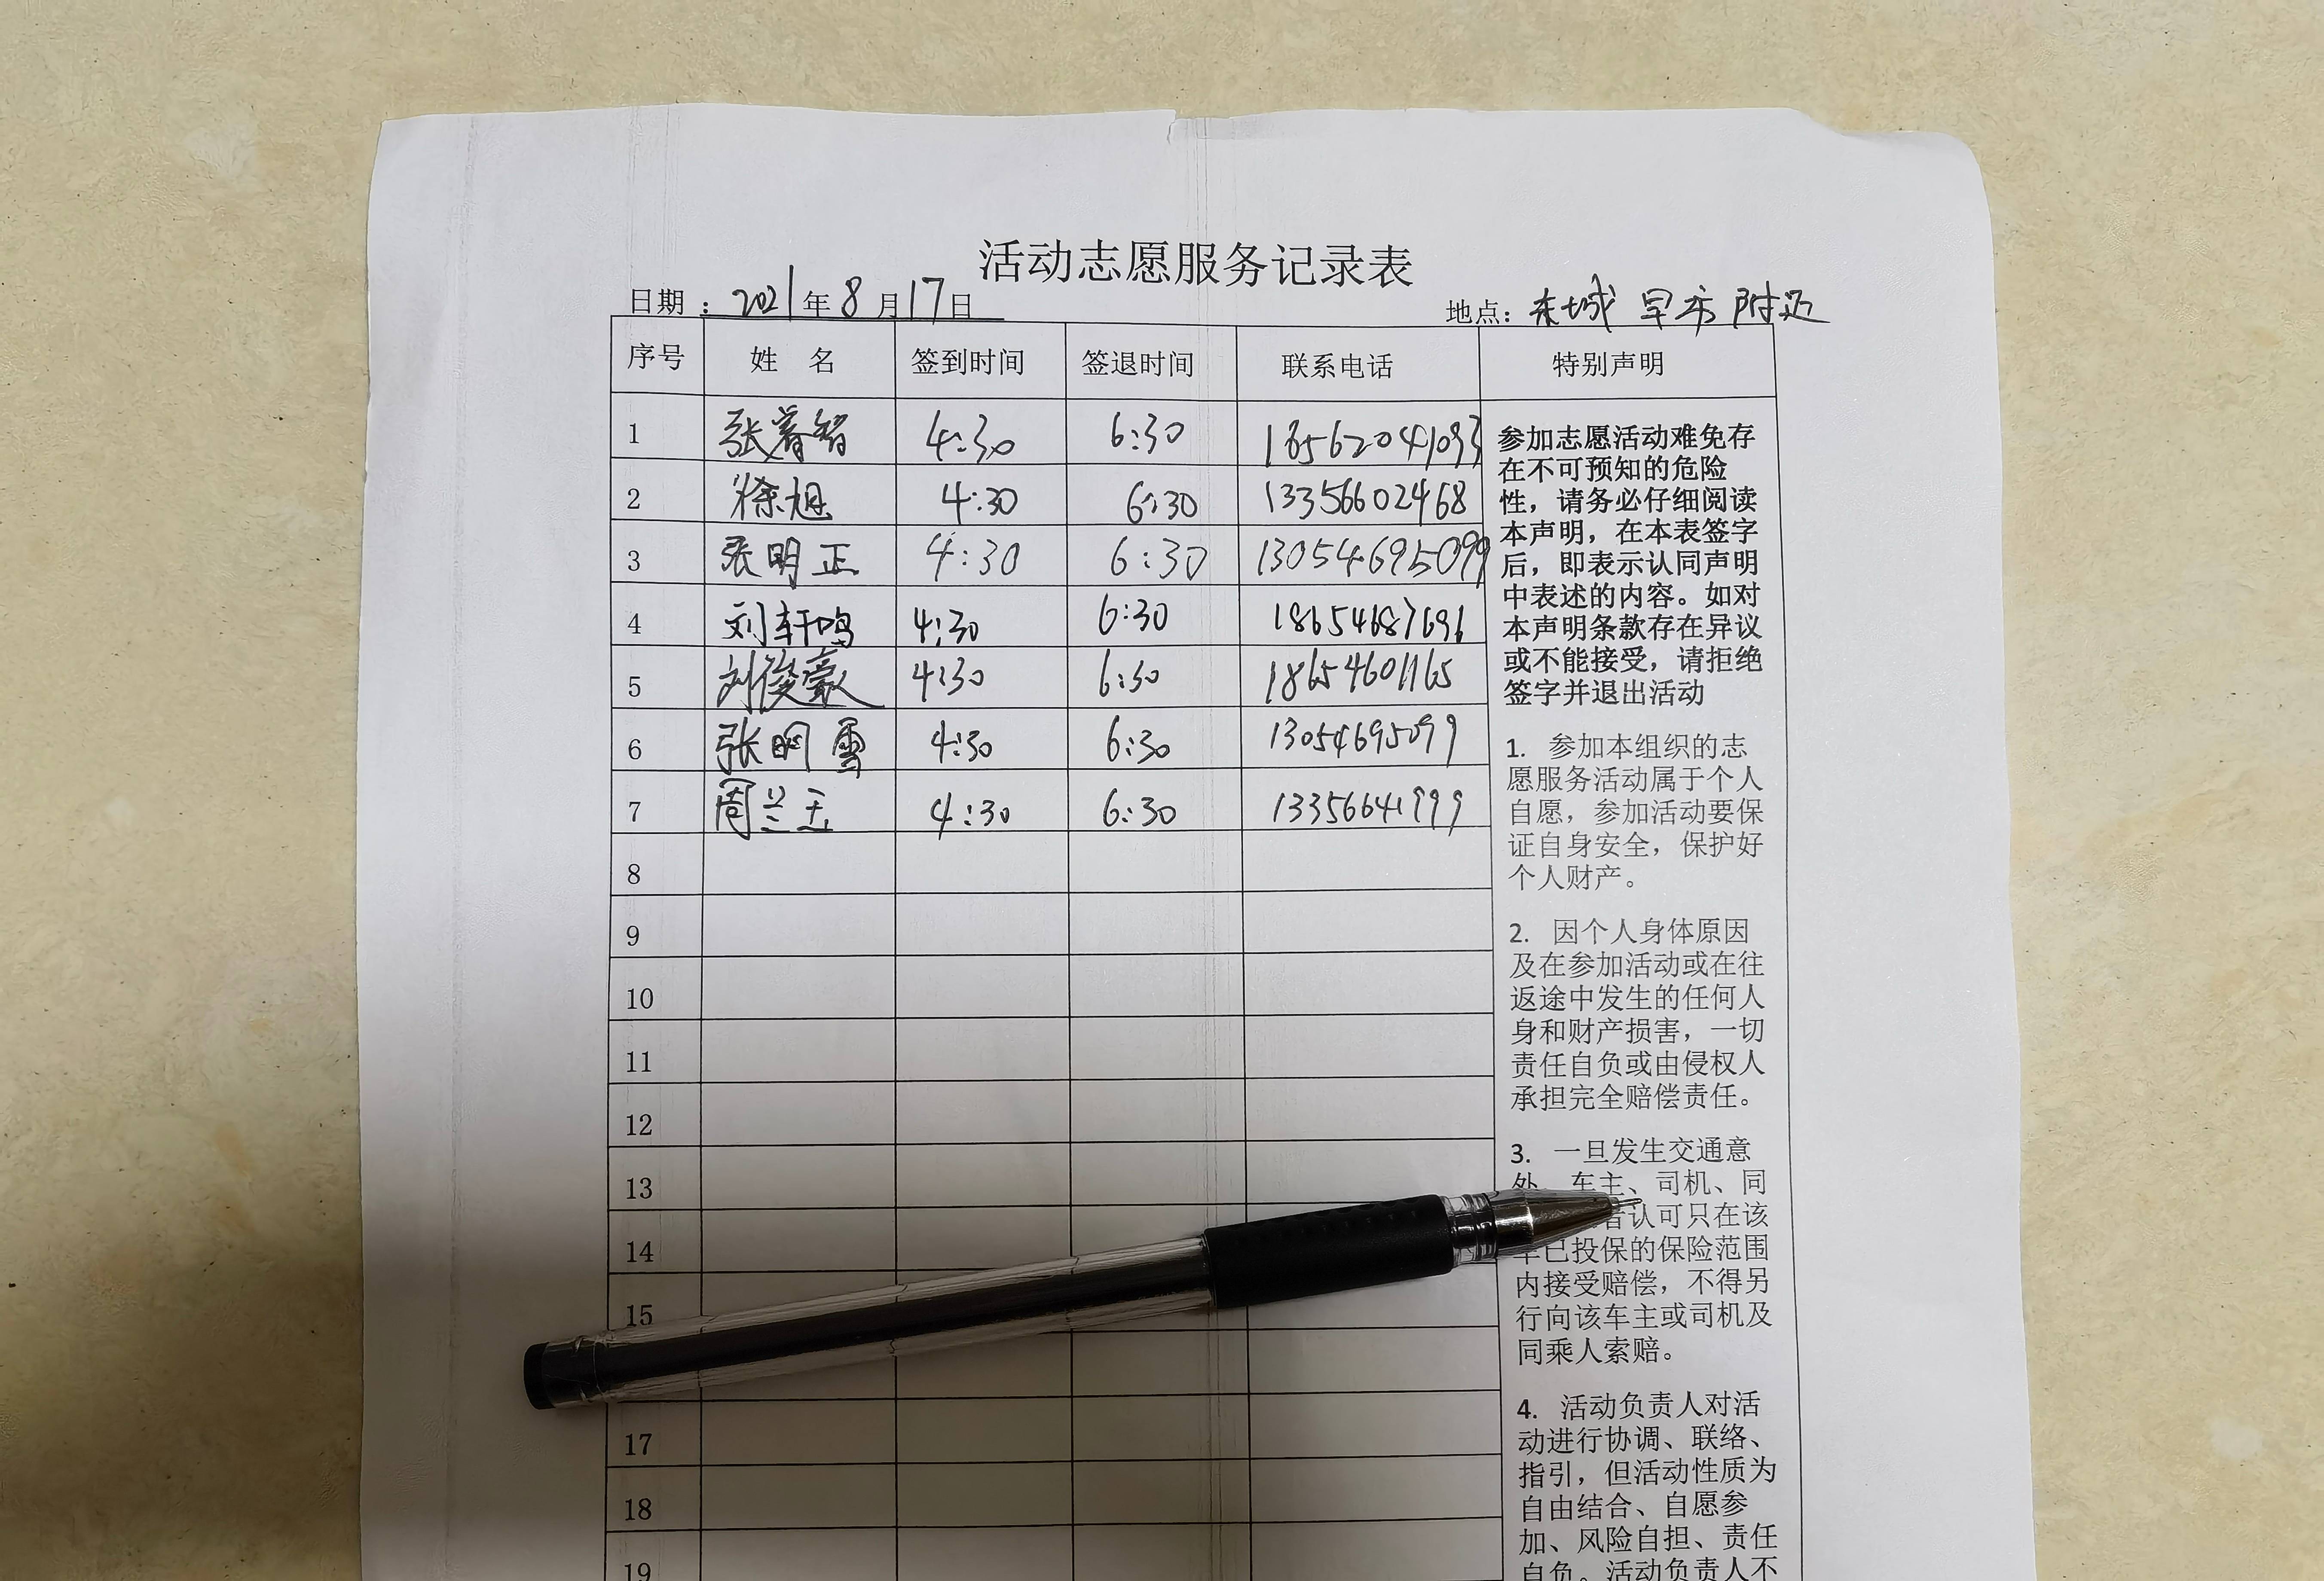 活动志愿服务记录表
日期：2021年8月17日 地点：东城 早市 附近
序号 姓 名 签到时间 签退时间 联系电话 特别声明
1 张睿智 4:30 6:30 18562041093
2 徐旭 4:30 6:30 13356602468
3 张明正 4:30 6:30 13054695099
4 刘轩鸣 4:30 6:30 18654687696
5 刘俊豪 4:30 6:30 18654601165
6 张明雪 4:30 6:30 13054695099
7 周兰玉 4:30 6:30 13356641999
8
9
10
11
12
13
14
15
17
18
19
参加志愿活动难免存
在不可预知的危险
性，请务必仔细阅读
本声明，在本表签字
后，即表示认同声明
中表述的内容。如对
本声明条款存在异议
或不能接受，请拒绝
签字并退出活动
1. 参加本组织的志
愿服务活动属于个人
自愿，参加活动要保
证自身安全，保护好
个人财产。
2. 因个人身体原因
及在参加活动或在往
返途中发生的任何人
身和财产损害，一切
责任自负或由侵权人
承担完全赔偿责任。
3. 一旦发生交通意
外 车主、司机、同
者认可只在该
车已投保的保险范围
内接受赔偿，不得另
行向该车主或司机及
同乘人索赔。
4. 活动负责人对活
动进行协调、联络、
指引，但活动性质为
自由结合、自愿参
加、风险自担、责任
自负。活动负责人不